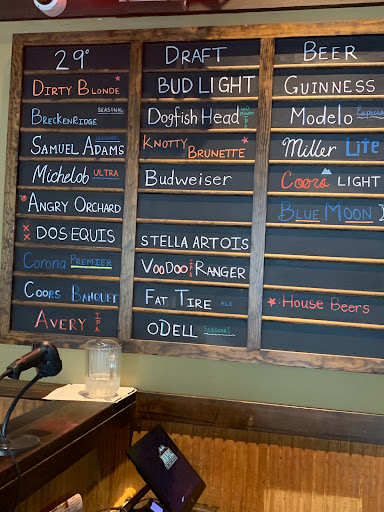 29° DRAFT BEER
DIRTY BLONDE *
BRECKENRIDGE SEASONAL
SAMUEL ADAMS SEASONAL
Michelob ULTRA
ANGRY ORCHARD
XX DOS EQUIS
Corona PREMIER
COORS BANQUET
AVERY IPA
BUD LIGHT
Dogfish Head
KNOTTY BRUNETTE *
Budweiser
STELLA ARTOIS
VOODOO RANGER
FAT TIRE ALE
ODELL Seasonal
GUINNESS
Modelo Especial
Miller Lite
Coors LIGHT
BLUE MOON
*:HOUSE BEERS